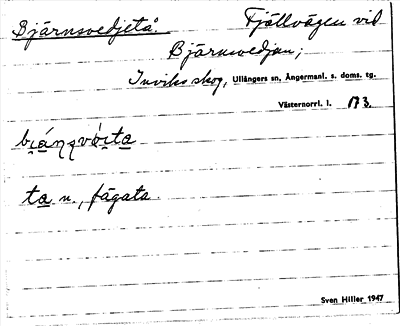 Bjärnsvedjetå. Fjällvägen vid
Bjärnsvedjan;
Inviks skog, Ullångers sn, Ångermanl. s. doms. tg.
Västernorrl. l. 173.
ta n., fägata
Sven Hiller 1947